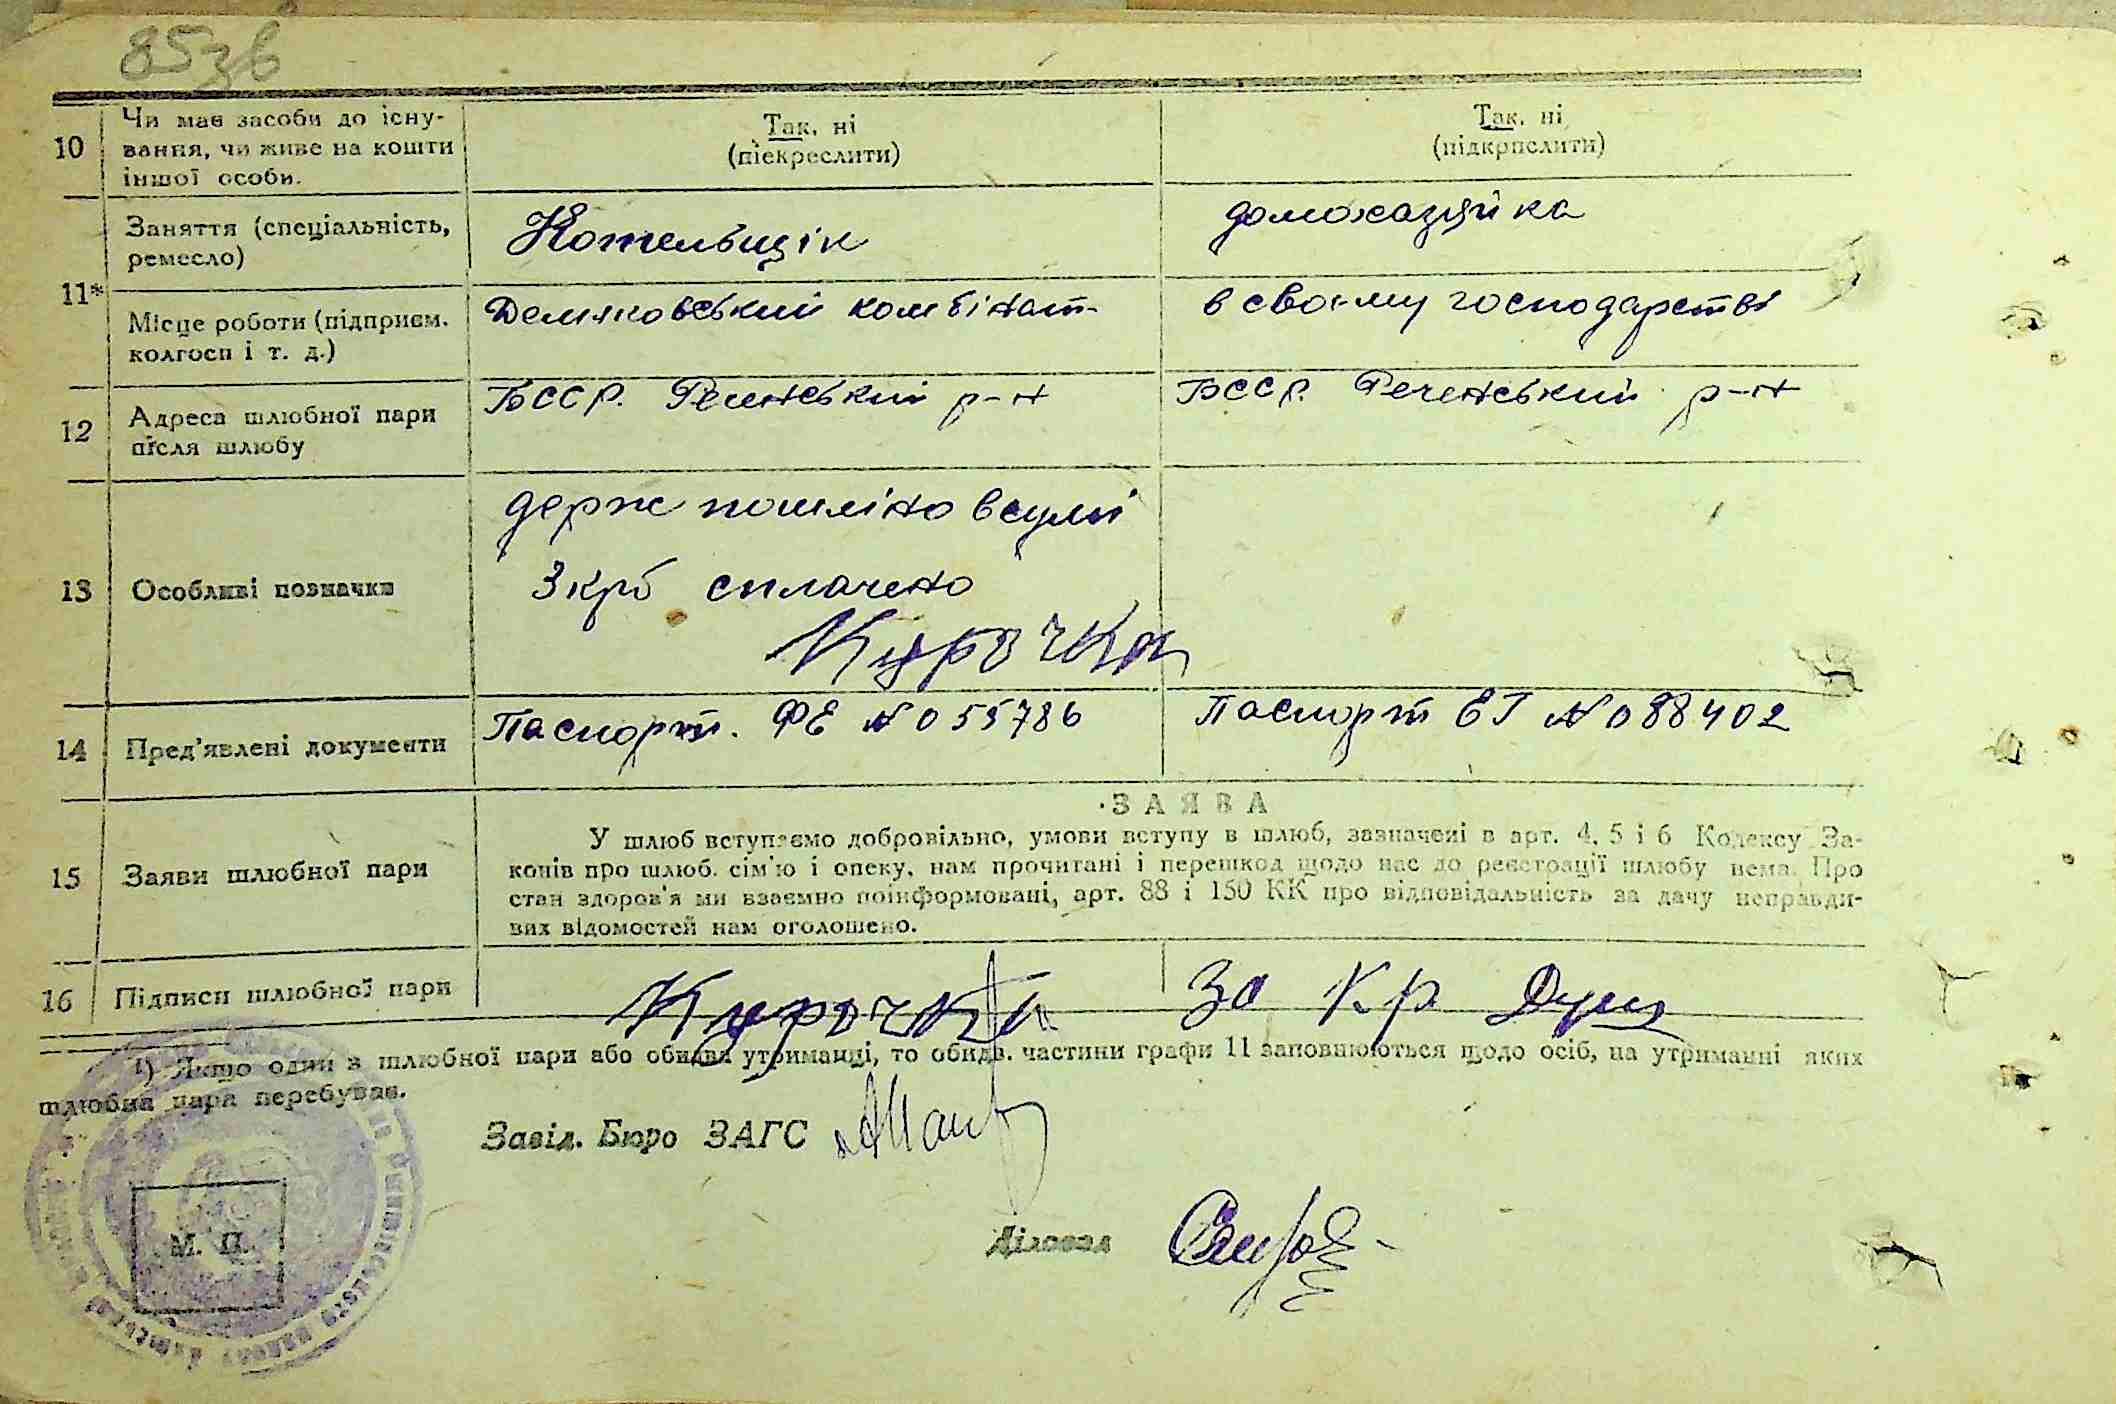 85зв
10
Чи має засоби до існу-
вання, чи живе на кошти
іншої особи.
Так, ні
(піекреслити)
Так, ні
(підкрпслити)
11*
Заняття (спеціальність,
ремесло)
Котельщік
домохазяйка
Місце роботи (підприєм.
колгосп і т. д.)
комбінат
в своєму господарстві
12
Адреса шлюбної пари
після шлюбу
БССР. Реченський р-н
БССР. Реченський р-н
13
Особливі позначки
держ пошліно в сумі
3 крб сплачено
Курочка
14
Пред'явлені документи
Паспорт. ФЕ № 055786
Паспорт ЕГ № 088402
15
Заяви шлюбної пари
ЗАЯВА
У шлюб вступаємо добровільно, умови вступу в шлюб, зазначені в арт. 4, 5 і 6 Кодексу За-
конів про шлюб. сім'ю і опеку, нам прочитані і перешкод щодо нас до реєстрації шлюбу нема. Про
стан здоров'я ми взаємно поінформовані, арт. 88 і 150 КК про відповідальність за дачу неправди-
вих відомостей нам оголошено.
16
Підписи шлюбної пари
Курочка
За Кр
¹) Якщо один з шлюбної пари або обидва утриманці, то обидв. частини графи 11 заповнюються щодо осіб, на утриманні яких
шлюбна пара перебуває.
Завід. Бюро ЗАГС
М. П.
Діловод